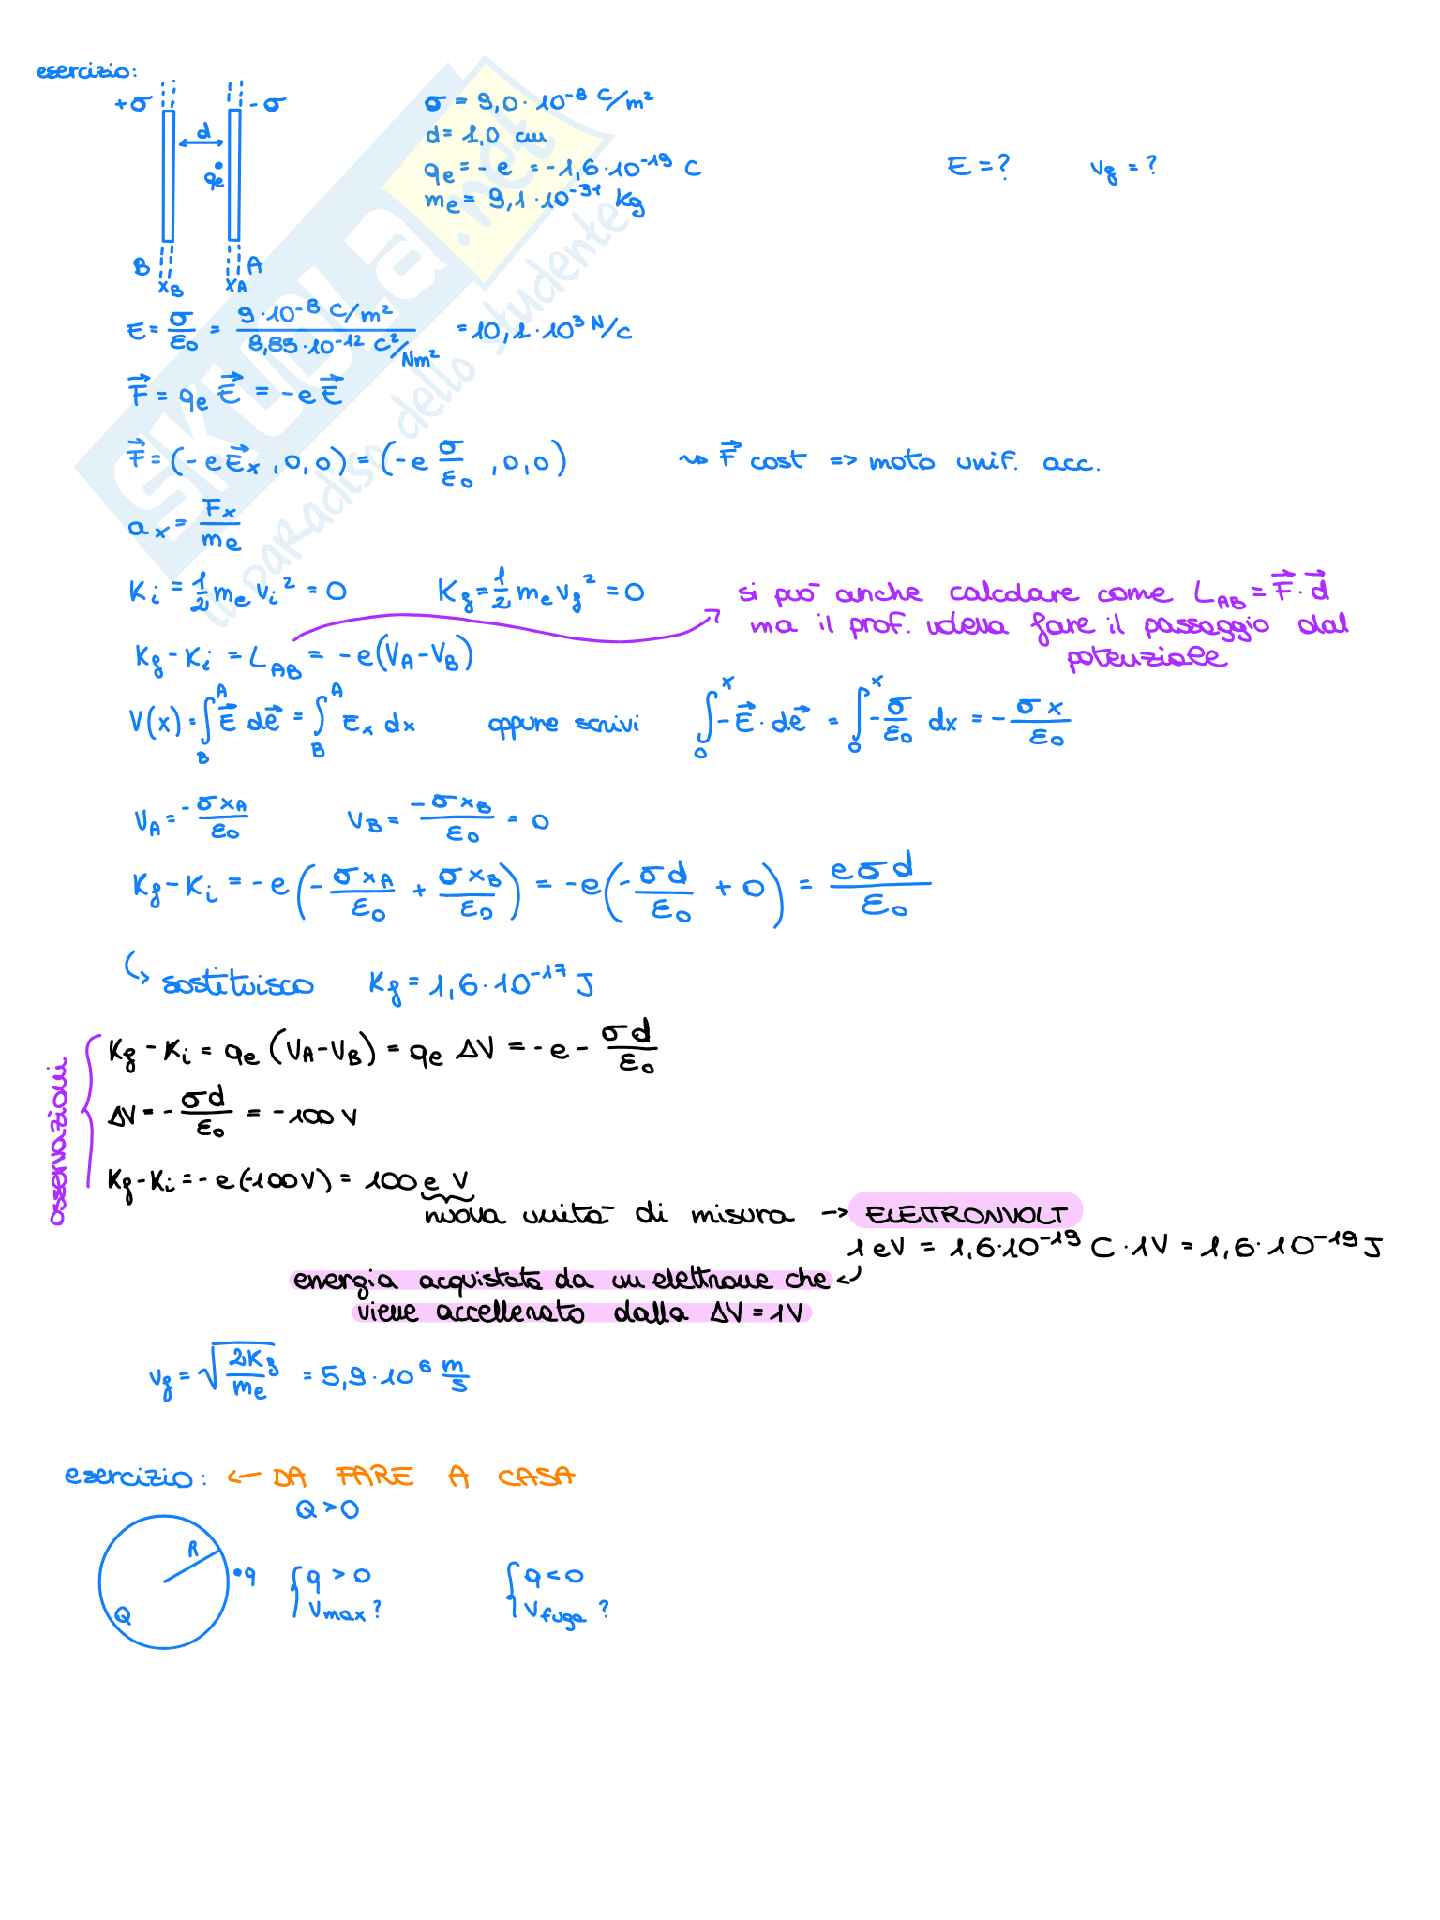 esercizio:
+σ -σ
d
qe
B A
xB xA
σ = 9,0·10⁻⁸ C/m²
d = 1,0 cm
qe = -e = -1,6·10⁻¹⁹ C
me = 9,1·10⁻³¹ Kg
E = ? vf = ?
E = σ/ε0 = 9·10⁻⁸ C/m² / 8,85·10⁻¹² C²/Nm² = 10,2·10³ N/C
F⃗ = qe E⃗ = -e E⃗
F⃗ = (-e E⃗x, 0, 0) = (-e σ/ε0, 0, 0) ⇝ F⃗ cost => moto unif. acc.
ax = Fx/me
Ki = 1/2 me vi² = 0 Kf = 1/2 me vf² = 0
si può anche calcolare come LAB = F⃗·d⃗
ma il prof. voleva fare il passaggio dal
potenziale
Kf - Ki = LAB = -e(VA - VB)
V(x) = ∫_B^A E⃗ de⃗ = ∫_B^A Ex dx oppure scrivi ∫_0^x -E⃗·de⃗ = ∫_0^x -σ/ε0 dx = -σx/ε0
VA = -σxA/ε0 VB = -σxB/ε0 = 0
Kf - Ki = -e(-σxA/ε0 + σxB/ε0) = -e(-σd/ε0 + 0) = eσd/ε0
↳ sostituisco Kf = 1,6·10⁻¹⁷ J
osservazioni
Kf - Ki = qe (VA - VB) = qe ΔV = -e - σd/ε0
ΔV = -σd/ε0 = -100 V
Kf - Ki = -e(-100V) = 100 e V
nuova unità di misura → ELETTRONVOLT
1 eV = 1,6·10⁻¹⁹ C · 1V = 1,6·10⁻¹⁹ J
energia acquistata da un elettrone che
viene accellerato dalla ΔV = 1V
vf = √(2Kf/me) = 5,9·10⁶ m/s
esercizio: ← DA FARE A CASA
Q > 0
R
Q
q
{ q > 0 { q < 0
Vmax? Vfuga?
SKUOLA.net
il paradiso dello studente